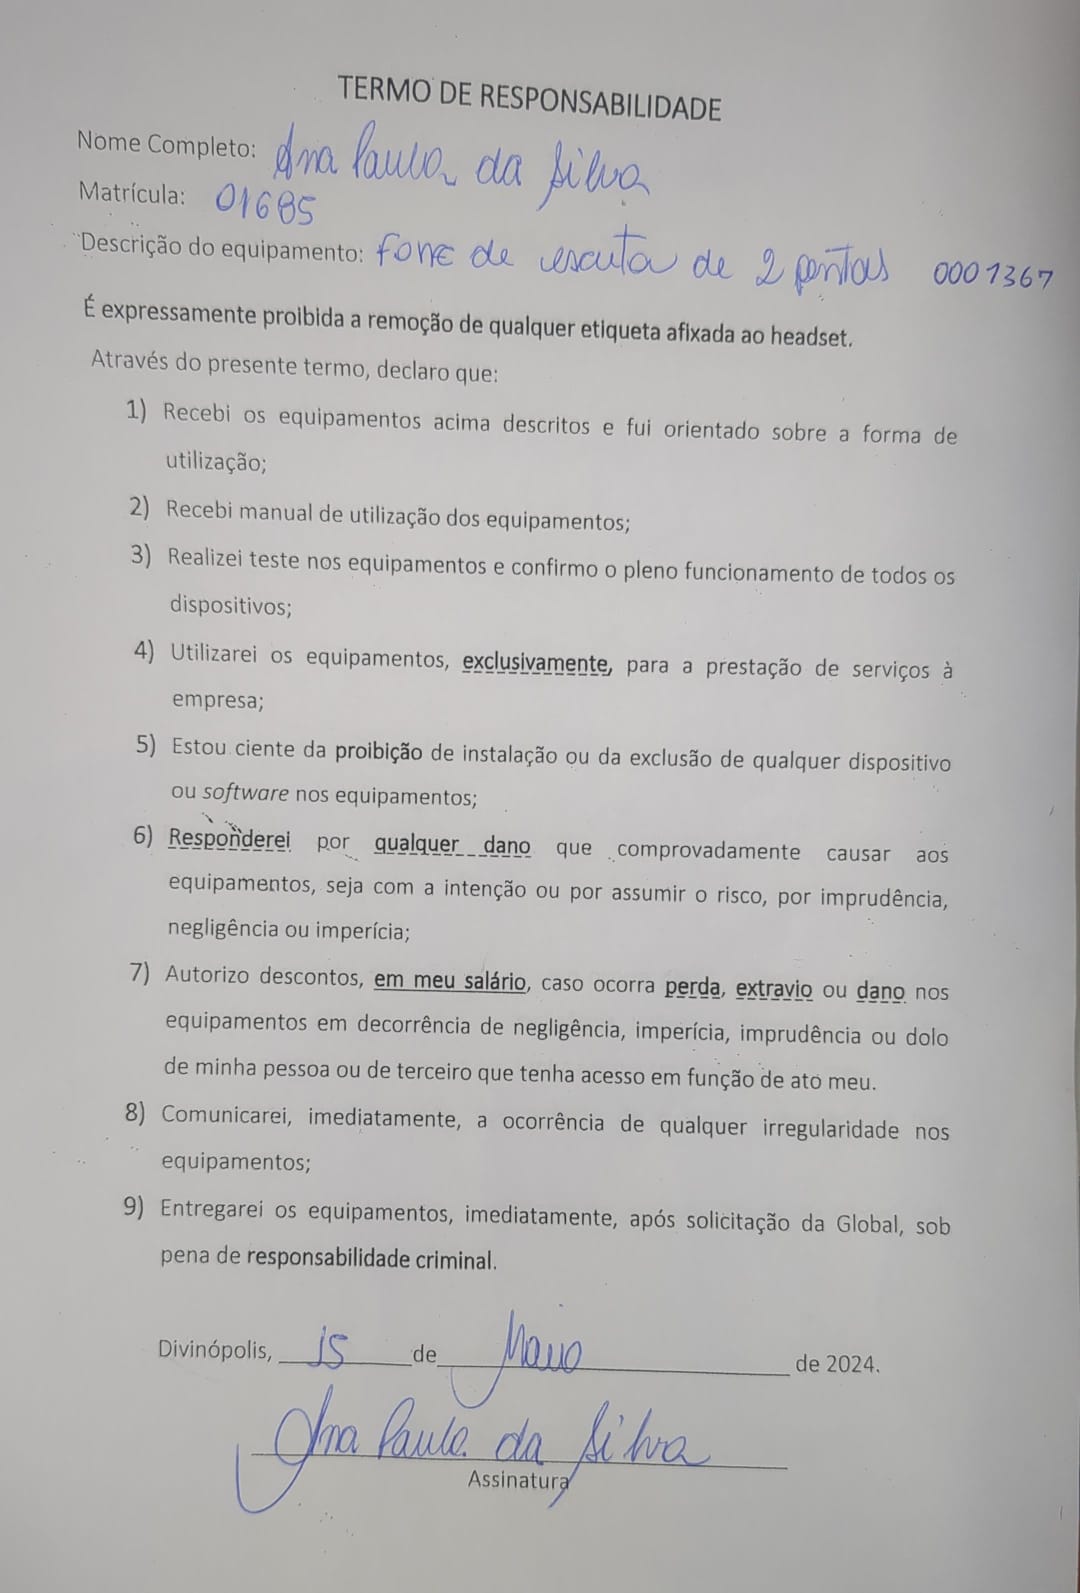 TERMO DE RESPONSABILIDADE
Nome Completo: Ana Paula da Silva
Matrícula: 01685
Descrição do equipamento: fone de escuta de 2 pontas 0001367
É expressamente proibida a remoção de qualquer etiqueta afixada ao headset.
Através do presente termo, declaro que:
1) Recebi os equipamentos acima descritos e fui orientado sobre a forma de
utilização;
2) Recebi manual de utilização dos equipamentos;
3) Realizei teste nos equipamentos e confirmo o pleno funcionamento de todos os
dispositivos;
4) Utilizarei os equipamentos, exclusivamente, para a prestação de serviços à
empresa;
5) Estou ciente da proibição de instalação ou da exclusão de qualquer dispositivo
ou software nos equipamentos;
6) Responderei por qualquer dano que comprovadamente causar aos
equipamentos, seja com a intenção ou por assumir o risco, por imprudência,
negligência ou imperícia;
7) Autorizo descontos, em meu salário, caso ocorra perda, extravio ou dano nos
equipamentos em decorrência de negligência, imperícia, imprudência ou dolo
de minha pessoa ou de terceiro que tenha acesso em função de ato meu.
8) Comunicarei, imediatamente, a ocorrência de qualquer irregularidade nos
equipamentos;
9) Entregarei os equipamentos, imediatamente, após solicitação da Global, sob
pena de responsabilidade criminal.
Divinópolis, 15 de Maio de 2024.
Ana Paula da Silva
Assinatura